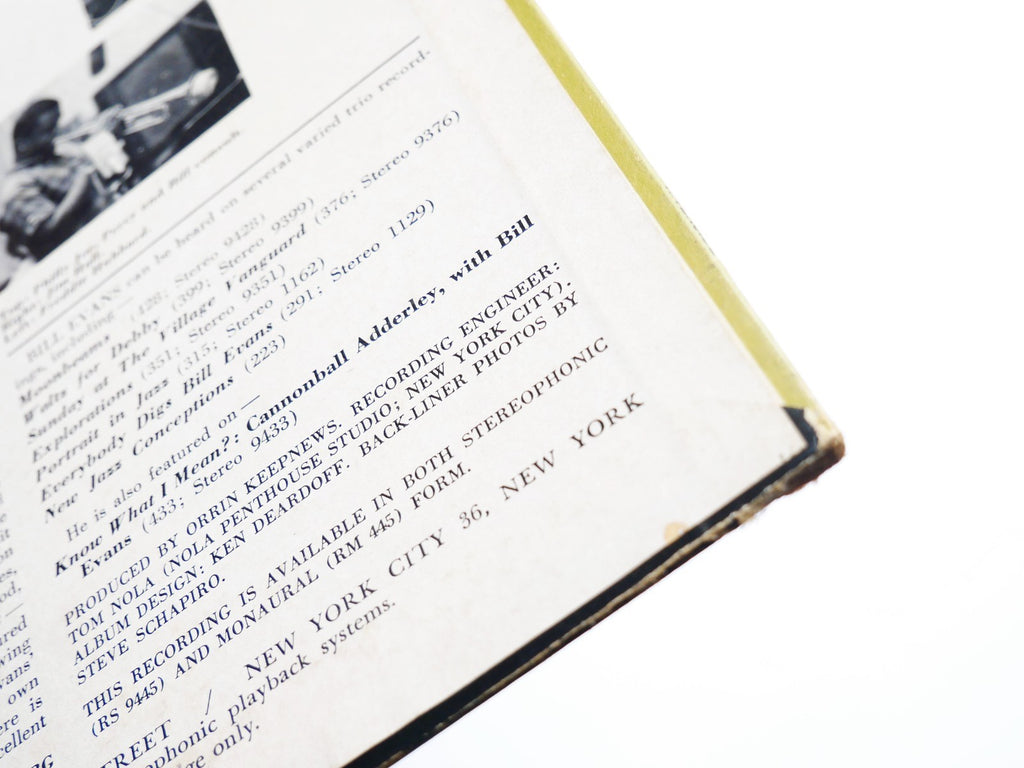 BILL EVANS can be heard on several varied trio record-
ings, including —
Moonbeams (428; Stereo 9428)
Waltz for Debby (399; Stereo 9399)
Sunday at The Village Vanguard (376; Stereo 9376)
Explorations (351; Stereo 9351)
Portrait in Jazz (315; Stereo 1162)
Everybody Digs Bill Evans (291; Stereo 1129)
New Jazz Conceptions (223)
He is also featured on —
Know What I Mean?: Cannonball Adderley, with Bill
Evans (433; Stereo 9433)
PRODUCED BY ORRIN KEEPNEWS. RECORDING ENGINEER:
TOM NOLA (NOLA PENTHOUSE STUDIO; NEW YORK CITY).
ALBUM DESIGN: KEN DEARDOFF. BACK-LINER PHOTOS BY
STEVE SCHAPIRO.
THIS RECORDING IS AVAILABLE IN BOTH STEREOPHONIC
(RS 9445) AND MONAURAL (RM 445) FORM.
REET / NEW YORK CITY 36, NEW YORK
ophonic playback systems.
ge only.
own
ere is
cellent